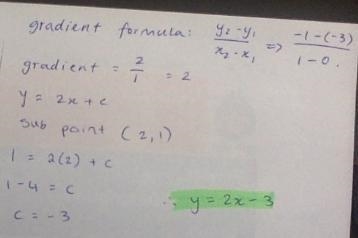 gradient formula: y₂-y₁/x₂-x₁ => -1-(-3)/1-0.
gradient = 2/1 = 2
y = 2x + c
sub point (2,1)
1 = 2(2) + c
1-4 = c
c = -3
∴ y = 2x - 3